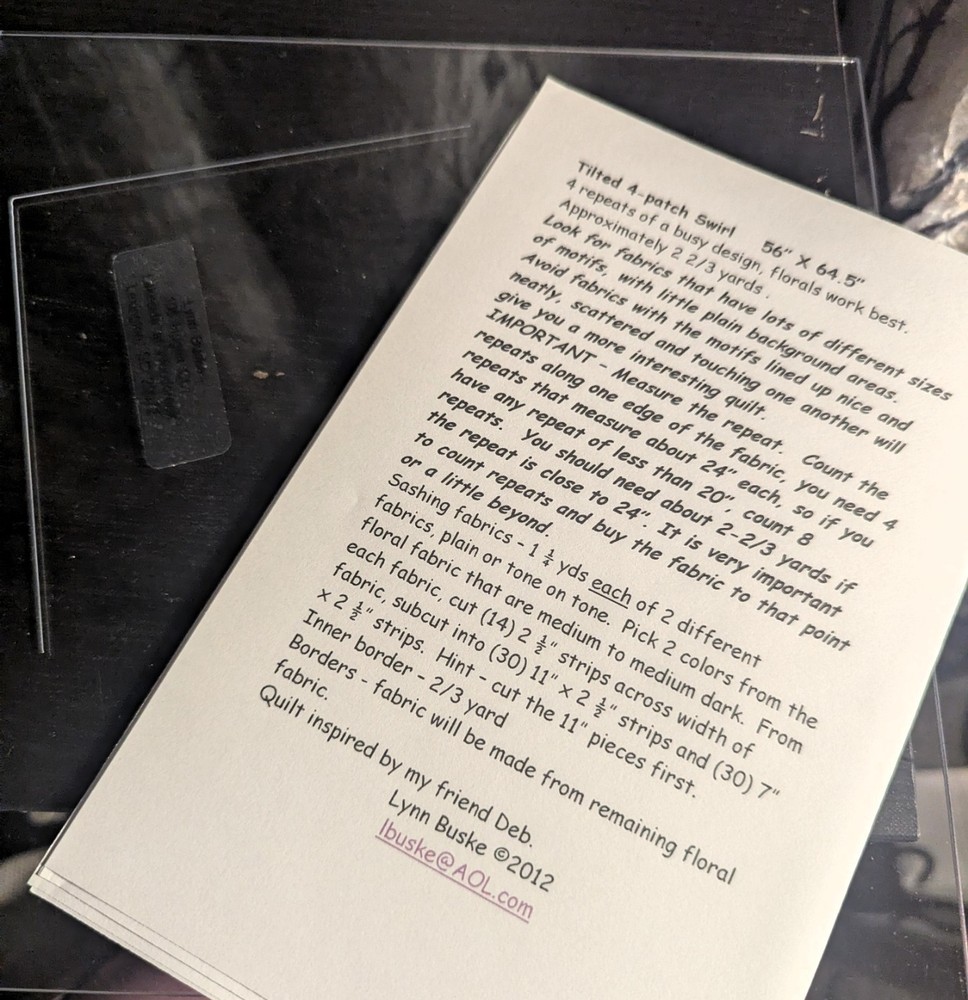 Tilted 4-patch Swirl 56" X 64.5"
4 repeats of a busy design, florals work best.
Approximately 2 2/3 yards.
Look for fabrics that have lots of different sizes
of motifs, with little plain background areas.
Avoid fabrics with the motifs lined up nice and
neatly, scattered and touching one another will
give you a more interesting quilt.
IMPORTANT - Measure the repeat. Count the
repeats along one edge of the fabric, you need 4
repeats that measure about 24" each, so if you
have any repeat of less than 20", count 8
repeats. You should need about 2-2/3 yards if
the repeat is close to 24". It is very important
to count repeats and buy the fabric to that point
or a little beyond.
Sashing fabrics - 1 ¼ yds each of 2 different
fabrics, plain or tone on tone. Pick 2 colors from the
floral fabric that are medium to medium dark. From
each fabric, cut (14) 2 ½" strips across width of
fabric, subcut into (30) 11" x 2 ½" strips and (30) 7"
x 2 ½" strips. Hint - cut the 11" pieces first.
Inner border - 2/3 yard
Borders - fabric will be made from remaining floral
fabric.
Quilt inspired by my friend Deb.
Lynn Buske ©2012
lbuske@AOL.com